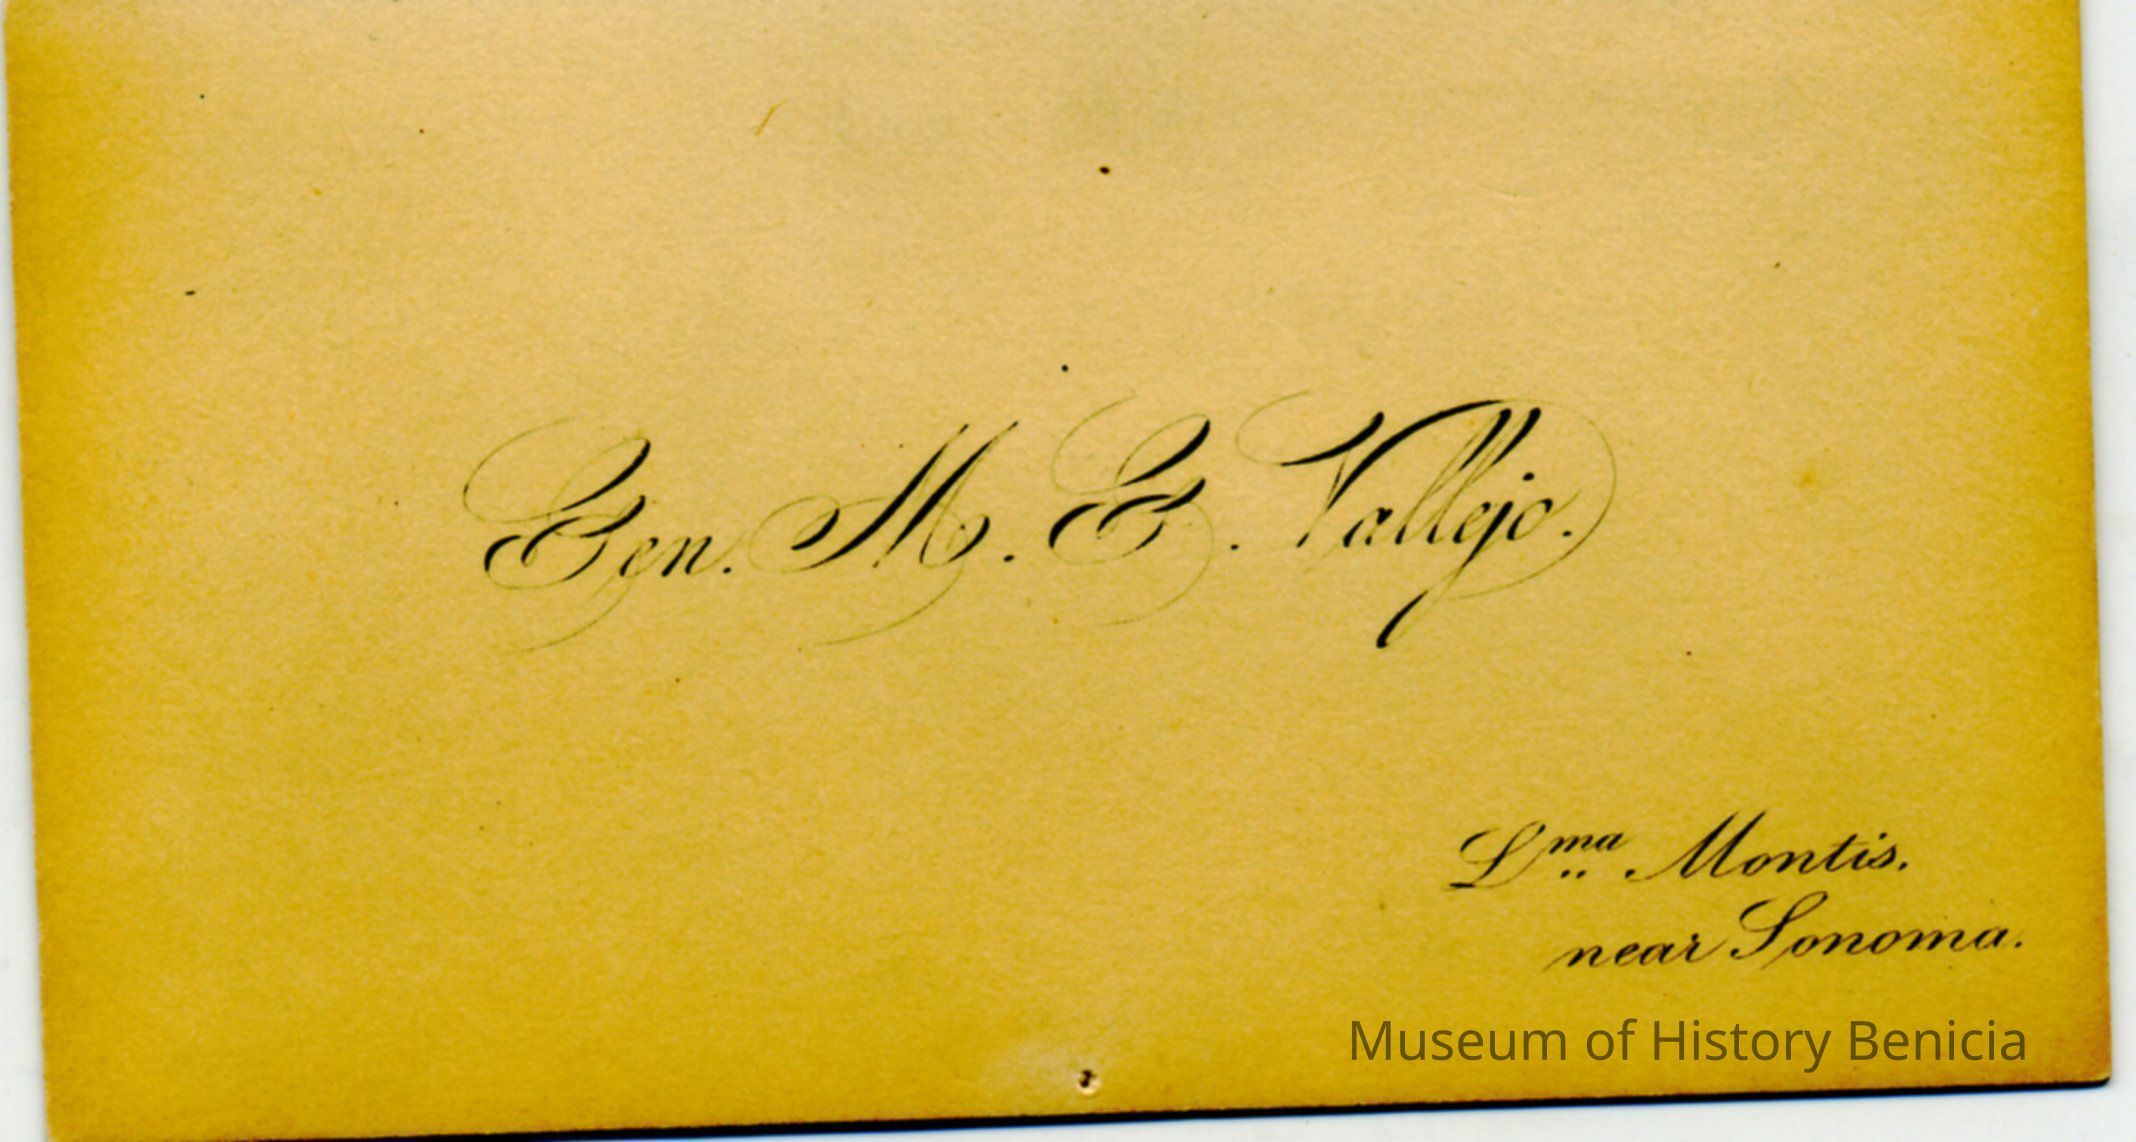 Gen. M. G. Vallejo.
Lma. Montis.
near Sonoma.
Museum of History Benicia